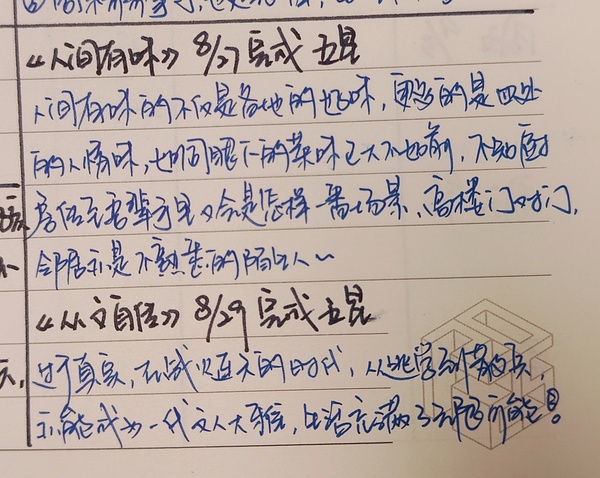 《人间有味》 8/27 完成 五星
人间有味的不仅是各地的好味，更多的是四处
的人情味，也叫同眼下的菜味已大不如前，不知厨
房传至吾辈手里又会是怎样一番场景，高楼门对门，
邻居亦是不熟悉的陌生人～
《从文自传》 8/29 完成 五星
过于真实，在战火连天的时代，从逃学到当兵，
亦能成为一代文人大雅，生活充满了无限可能！